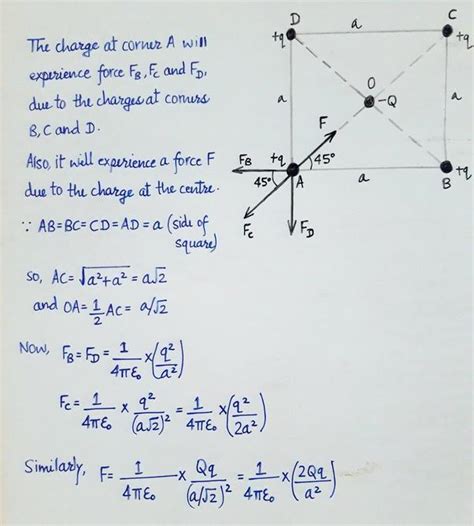 The charge at corner A will
experience force F_B, F_C and F_D,
due to the charges at corners
B, C and D.
Also, it will experience a force F
due to the charge at the centre.
∵ AB=BC=CD=AD=a (side of
square)
so, AC= √(a²+a²) = a√2
and OA= 1/2 AC= a/√2
Now, F_B = F_D = 1/4πε₀ × (q²/a²)
F_C = 1/4πε₀ × q²/(a√2)² = 1/4πε₀ × (q²/2a²)
Similarly, F= 1/4πε₀ × Qq/(a/√2)² = 1/4πε₀ × (2Qq/a²)
D a C
+q +q
a O -Q a
F
F_B +q 45°
45° A a B +q
F_C F_D